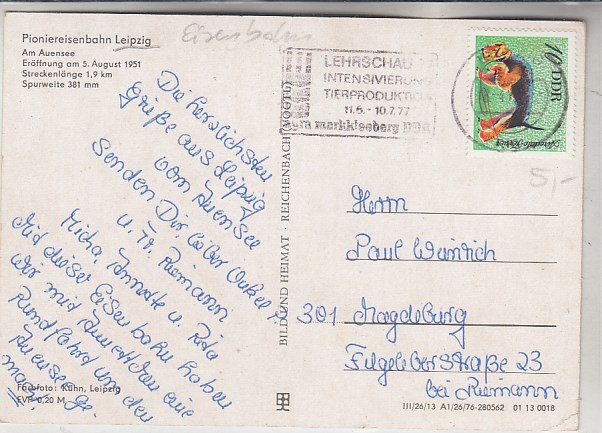 Pioniereisenbahn Leipzig
Eisenbahn
Am Auensee
Eröffnung am 5. August 1951
Streckenlänge 1,9 km
Spurweite 381 mm
Die herzlichsten
Grüße aus Leipzig
vom Auensee
senden Dir, lieber Onkel P.
u. Fr. Riemann
Micha, Annette u. Rita
Mit dieser Eisenbahn haben
wir mit Annettchen eine
Rundfahrt um den
Auensee ge-
macht.
Farbfoto: Kühn, Leipzig
EVP 0,20 M
BILD UND HEIMAT · REICHENBACH (VOGTL)
LEHRSCHAU
INTENSIVIERUNG
TIERPRODUKTION
11.6. - 10.7.77
agra markkleeberg DDR
10 DDR
5,-
Herrn
Paul Weinrich
301 Magdeburg
Fugeleberstraße 23
bei Riemann
III/26/13 A1/26/76-280562 01 13 0018